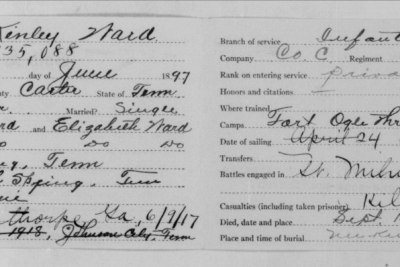 Kinley Ward
35,088
day of June 1897
County Carter State of Tenn
Married? Single
and Elizabeth Ward
Do Do
Tenn
Spping, Tenn
thorpe, Ga, 6/9/17
1918, Johnson City, Tenn
Branch of service Infant
Company Co. C. Regiment
Rank on entering service priva
Honors and citations
Where trained
Camps Fort Ogle Thr
Date of sailing April 24
Transfers
Battles engaged in St. Mihi
Casualties (including taken prisoner) Kil
Died, date and place Sept. 1
Place and time of burial